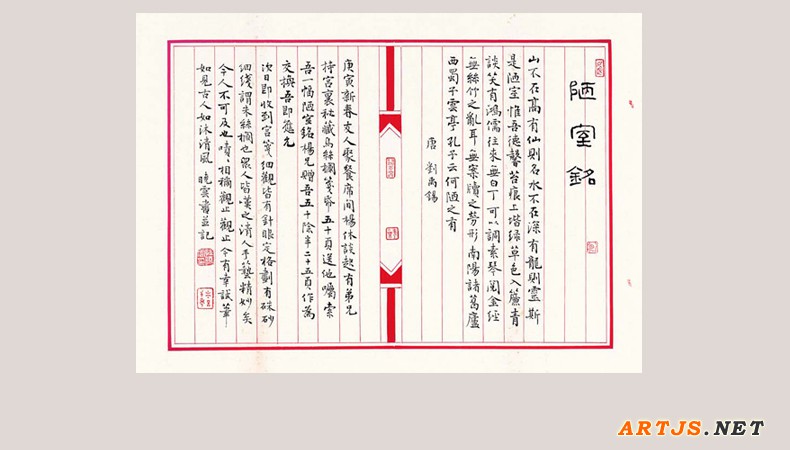 陋室銘
山不在高有仙則名水不在深有龍則靈斯
是陋室惟吾德馨苔痕上堦绿草色入簾青
談笑有鴻儒往來無白丁可以調素琴閱金經
無絲竹之亂耳無案牘之勞形南陽諸葛廬
西蜀子雲亭孔子云何陋之有
唐 劉禹錫
庚寅新春友人聚餐席間楊休談起有弟兄
持宫裏秘藏烏絲欄箋帋五十頁送他囑索
吾一幅陋室銘楊兄贈吾五十陰年二十五頁作為
交換吾即應允
次日即收到宫箋細觀皆有針眼定格劃有硃砂
细綫謂朱絲欄也眾人皆嘆之清人手藝精妙矣
令人不可及也嘖嘖相稱觀止觀止今有幸試筆
如見古人如沐清風 曉雲齋並記
ARTJS.NET